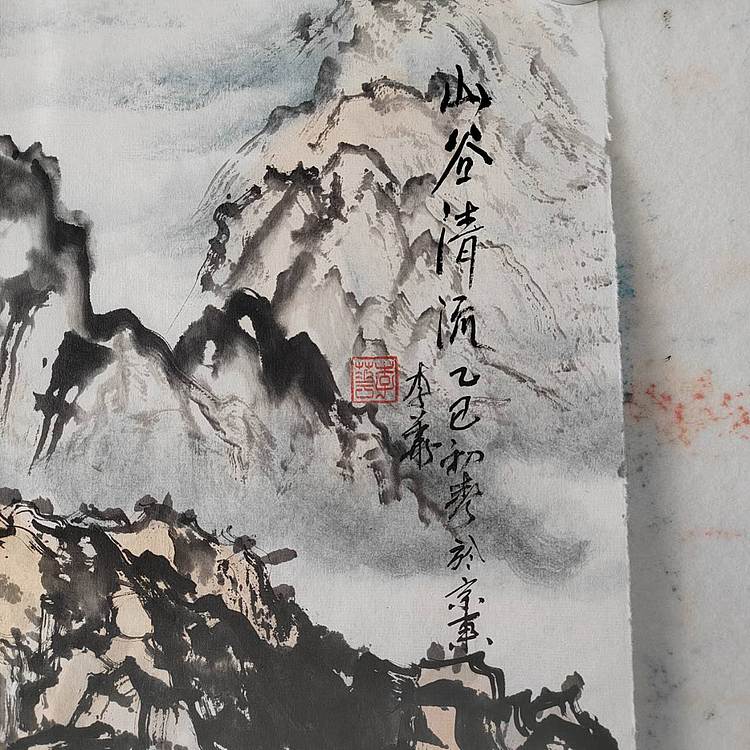 山谷清流乙巳初春於京東
李